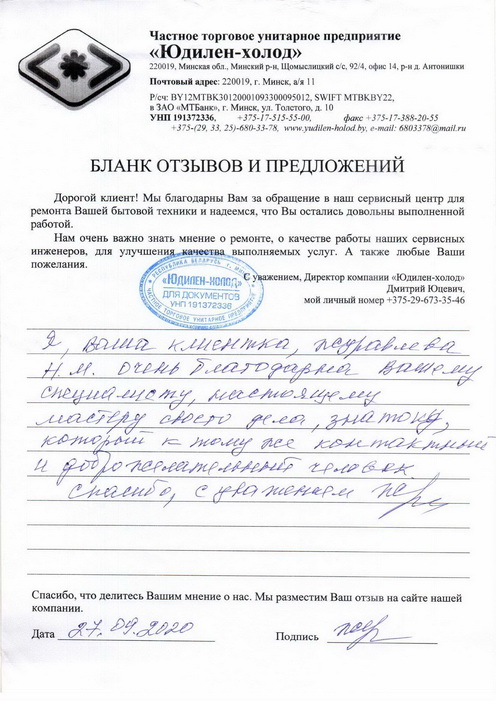 Частное торговое унитарное предприятие
«Юдилен-холод»
220019, Минская обл., Минский р-н, Щомыслицкий с/с, 92/4, офис 14, р-н д. Антонишки
Почтовый адрес: 220019, г. Минск, а/я 11
Р/сч: BY12MTBK30120001093300095012, SWIFT MTBKBY22,
в ЗАО «МТБанк», г. Минск, ул. Толстого, д. 10
УНП 191372336, +375-17-515-55-00, факс +375-17-388-20-55
+375-(29, 33, 25)-680-33-78, www.yudilen-holod.by, e-mail: 6803378@mail.ru
БЛАНК ОТЗЫВОВ И ПРЕДЛОЖЕНИЙ
Дорогой клиент! Мы благодарны Вам за обращение в наш сервисный центр для
ремонта Вашей бытовой техники и надеемся, что Вы остались довольны выполненной
работой.
Нам очень важно знать мнение о ремонте, о качестве работы наших сервисных
инженеров, для улучшения качества выполняемых услуг. А также любые Ваши
пожелания.
С уважением, Директор компании «Юдилен-холод»
Дмитрий Юцевич,
мой личный номер +375-29-673-35-46
РЕСПУБЛИКА БЕЛАРУСЬ
«ЮДИЛЕН-ХОЛОД»
ДЛЯ ДОКУМЕНТОВ
УНП 191372336
ЧАСТНОЕ ТОРГОВОЕ УНИТАРНОЕ ПРЕДПРИЯТИЕ
Я, ваша клиентка, Журавлева
Н.М. очень благодарна Вашему
специалисту, настоящему
мастеру своего дела, знатоку,
который к тому же контактный
и доброжелательный человек.
Спасибо, с уважением
Спасибо, что делитесь Вашим мнение о нас. Мы разместим Ваш отзыв на сайте нашей
компании.
Дата 27.09.2020 Подпись